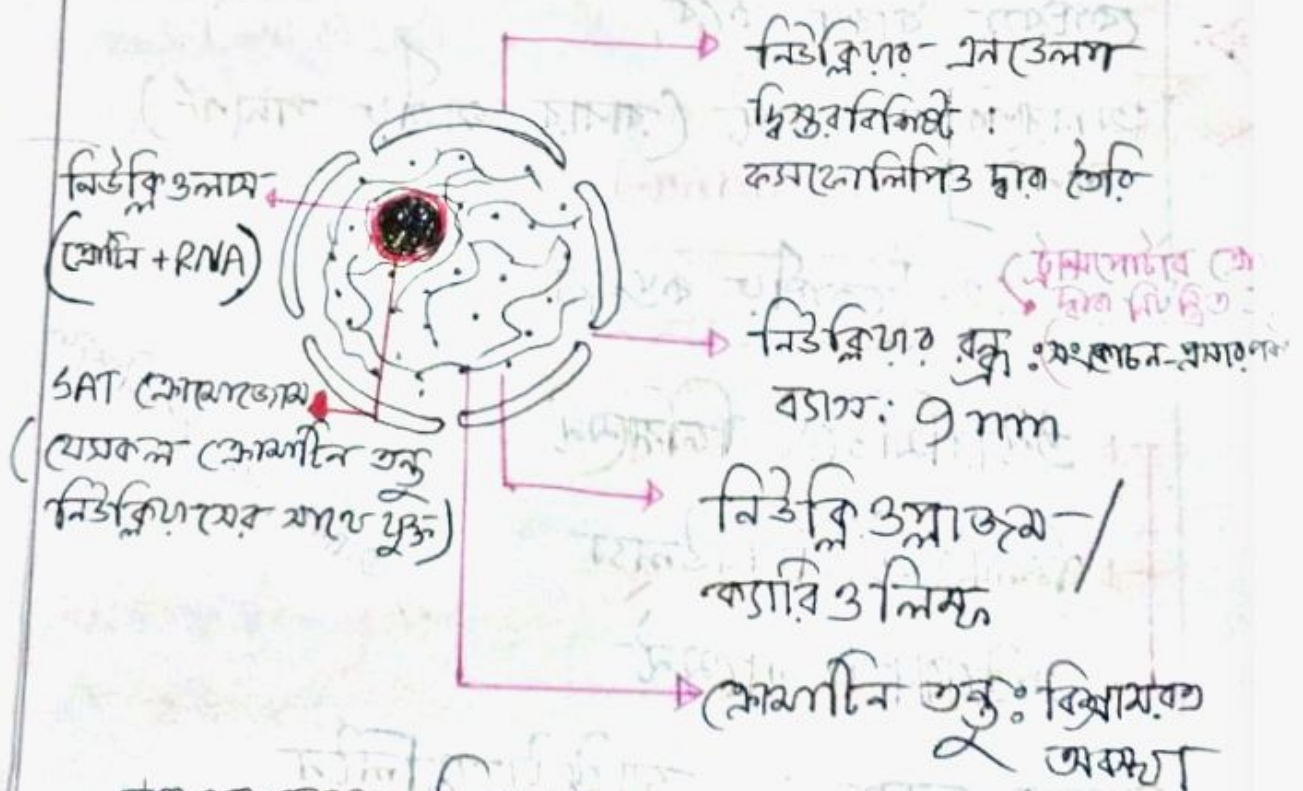 নিউক্লিয়ার এনভেলপ
দ্বিস্তরবিশিষ্ট :
ফসফোলিপিড দ্বারা তৈরি
নিউক্লিওলাস
(প্রোটিন + RNA)
ট্রান্সপোর্টার
দ্বারা নিয়ন্ত্রিত
নিউক্লিয়ার রন্ধ্র : সংকোচন-প্রসারণ
ব্যাস: 9 nm
SAT ক্রোমোজোম
(যেসকল ক্রোমাটিন তন্তু
নিউক্লিয়াসের সাথে যুক্ত)
নিউক্লিওপ্লাজম /
ক্যারিওলিম্ফ
ক্রোমাটিন তন্তু: বিশ্রামরত
অবস্থা